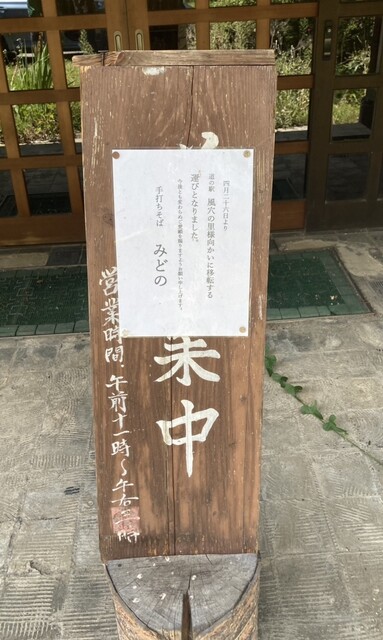 四月二十六日より
道の駅 風穴の里様向かいに移転する
運びとなりました。
今後とも変わらぬご愛顧を賜りますようお願い申し上げます。
手打ちそば みどの
中
営業時間・午前十一時〜午右三時